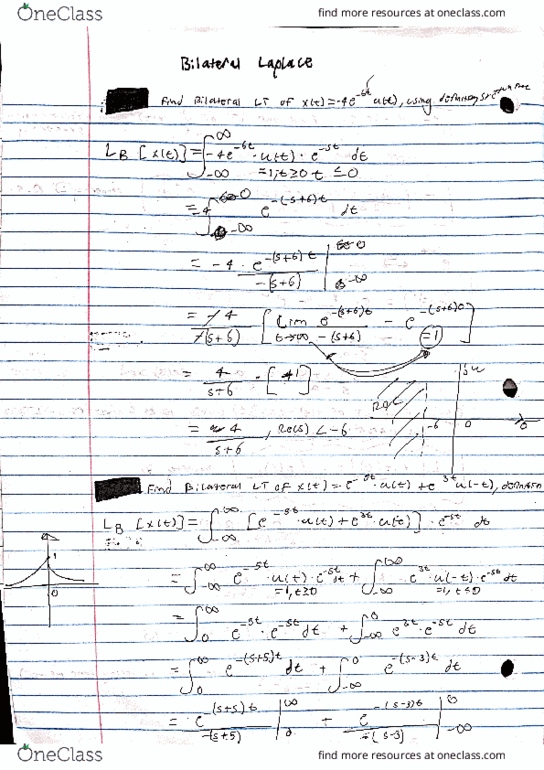 OneClass
find more resources at oneclass.com
Bilateral Laplace
Find Bilateral LT of x(t)=-4e^-6t u(t), using definition
L_B [x(t)] = ∫_-∞^∞ -4e^-6t · u(t) · e^-st dt
=1, t≥0 t ≤0
= -4 ∫_-∞^0 e^-(s+6)t dt
= -4 · e^-(s+6)t / -(s+6) | 0 -∞
= -4 / -(s+6) [ lim e^-(s+6)t / -(s+6) - e^-(s+6)0 ]
t→∞ =1
= 4 / s+6 · [ 1 ]
jω
ROC
-6 0
= 4 / s+6 , Re(s) < -6
Find Bilateral LT of x(t) = e · u(t) + e^3t u(-t), definition
L_B [x(t)] = ∫_-∞^∞ [e^-5t · u(t) + e^3t · u(t)] · e^-st dt
1
0
= ∫_-∞^∞ e^-5t · u(t) · e^-st dt + ∫_-∞^∞ e^3t · u(-t) · e^-st dt
=1, t≥0 =1, t≤0
= ∫_0^∞ e^-5t · e^-st dt + ∫_-∞^0 e^3t · e^-st dt
= ∫_0^∞ e^-(s+5)t dt + ∫_-∞^0 e^-(s-3)t dt
= e^-(s+5)t / -(s+5) | ∞ 0 + e^-(s-3)t / -(s-3) | 0 -∞
OneClass
find more resources at oneclass.com